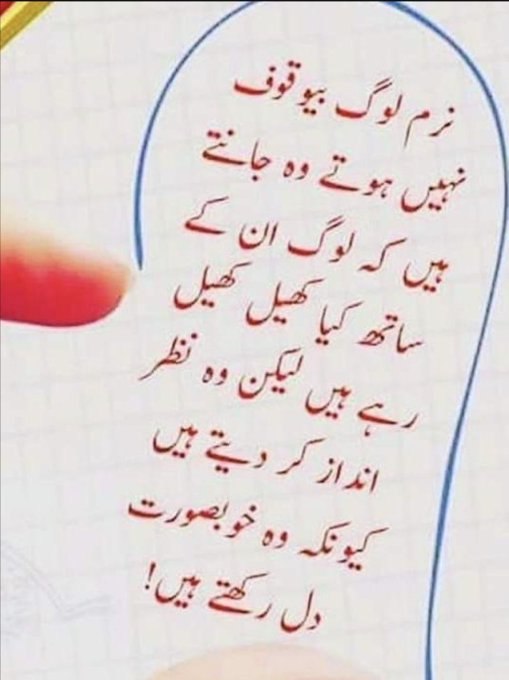 نرم لوگ بیوقوف
نہیں ہوتے وہ جانتے
ہیں کہ لوگ ان کے
ساتھ کیا کھیل کھیل
رہے ہیں لیکن وہ نظر
انداز کر دیتے ہیں
کیونکہ وہ خوبصورت
دل رکھتے ہیں!